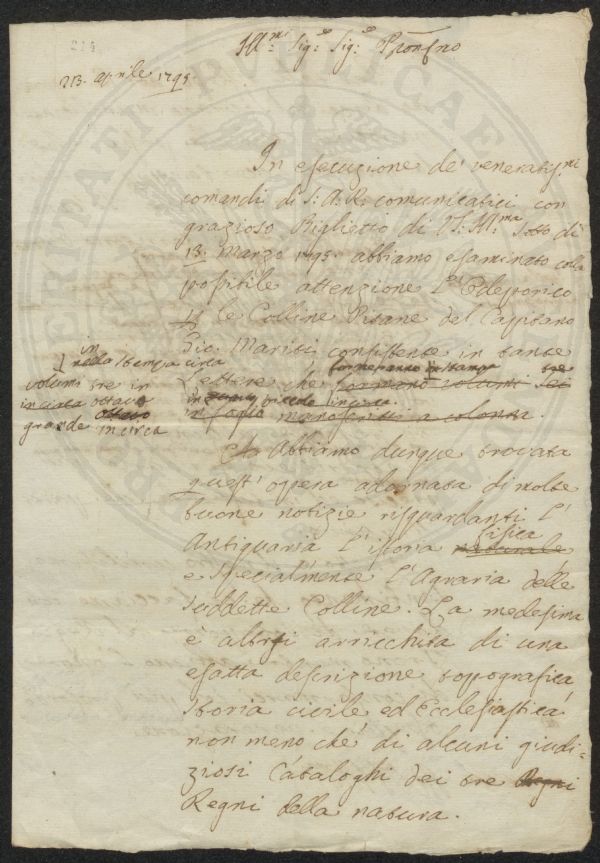 214
Ill.mi Sig.e Sig.e
23. aprile 1795
In esecuzione de' veneratiss.mi
comandi di S: A: R: comunicatici con
grazioso Biglietto di VS: Ill.ma sotto dì
13. Marzo 1795. abbiamo esaminato colla
possibile attenzione l'Odeporico
le Colline Pisane del Capitano
Gio: Mariti consistente in tante
formeranno in stampa tre
Lettere che formano volumi sei
in piccolo incirca.
in foglio manoscritti a colonna.
in
nella stampa circa
volumi tre in
incirca ottavo
grande ottavo
in circa
Abbiamo dunque trovata
quest' opera adornata di molte
buone notizie risguardanti l'
fisica
Antiquaria l'istoria naturale
e specialmente l'Agraria delle
suddette Colline. La medesima
è altresì arricchita di una
esatta descrizione topografica,
storia civile, ed Ecclesiastica
non meno che di alcuni giudi=
ziosi Cataloghi dei tre Regni
Regni della natura.